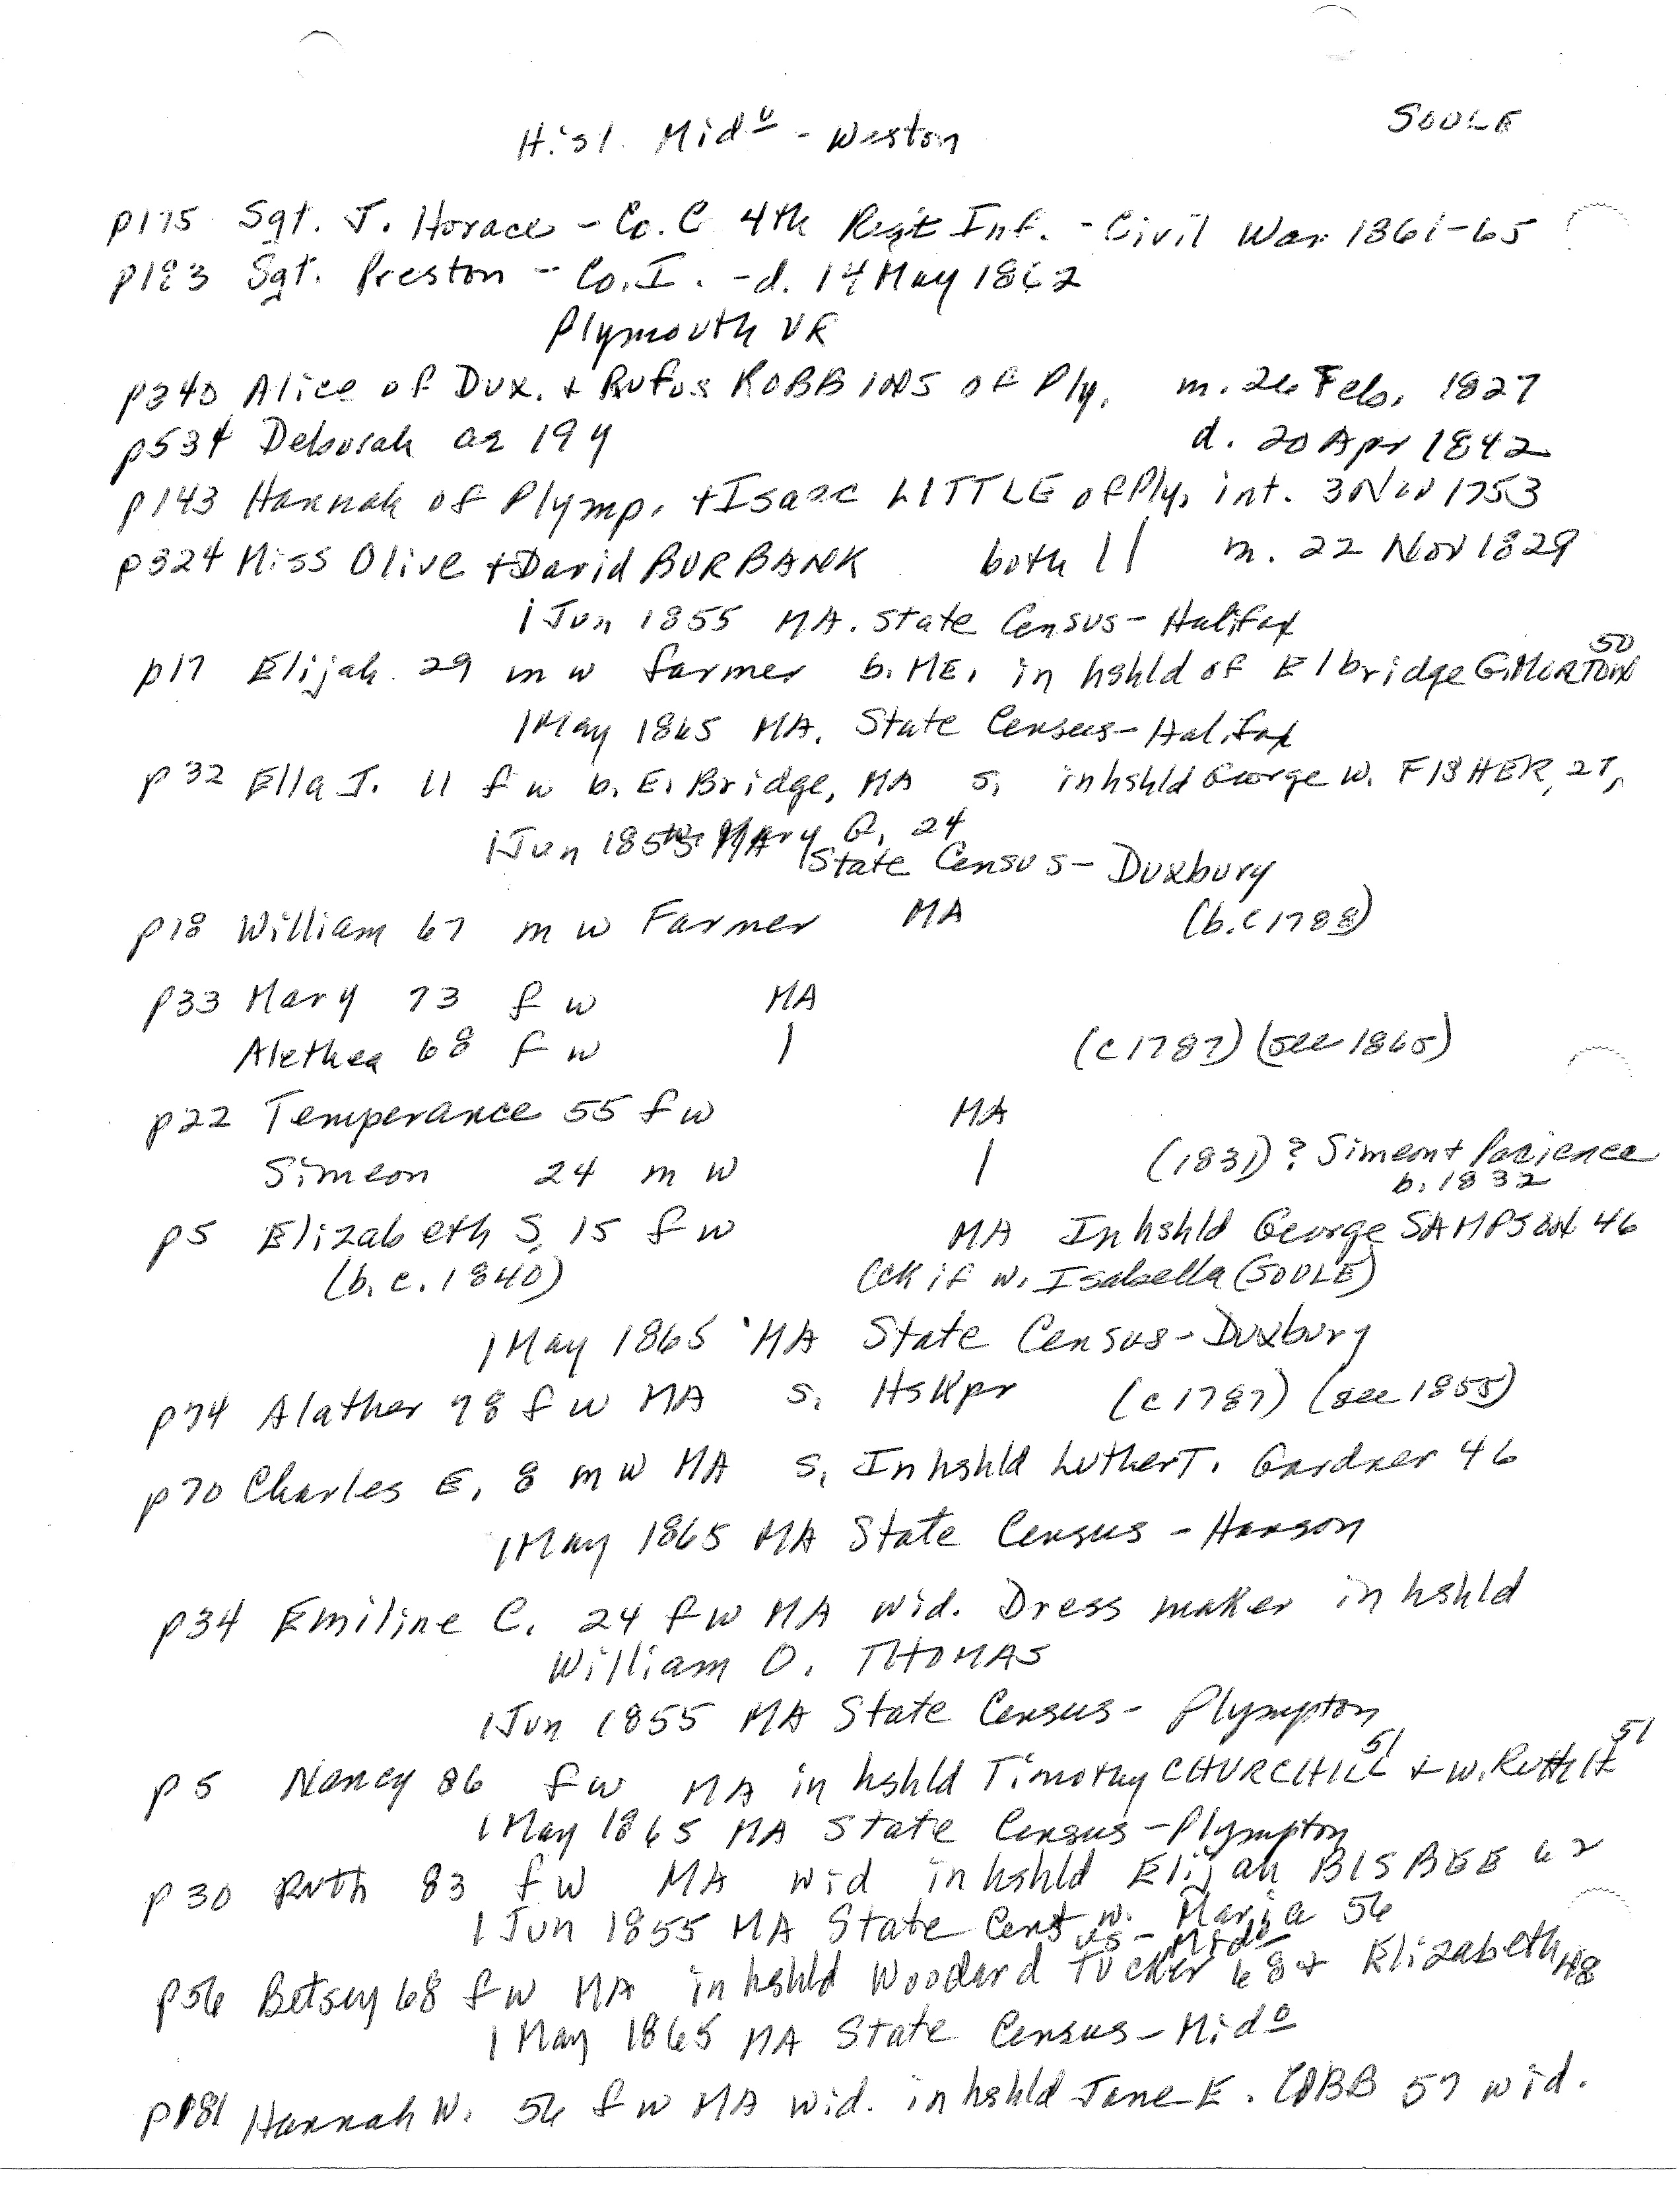 SOULE
Hist. Mido - Weston
p175 Sgt. J. Horace - Co. C 4th Regt Inf. - Civil War 1861-65
p183 Sgt. Preston - Co. I. - d. 14 May 1862
Plymouth VR
p340 Alice of Dux. + Rufus ROBBINS of Ply. m. 26 Feb. 1827
p534 Deborah ae 19 y d. 20 Apr 1842
p143 Hannah of Plymp. + Isaac LITTLE of Ply. int. 3 Nov 1753
p324 Miss Olive + David BURBANK both || m. 22 Nov 1829
1 Jun 1855 MA. State Census - Halifax
p17 Elijah 29 m w farmer b. ME. in hshld of Elbridge G. MORTON 50
1 May 1865 MA. State Census - Halifax
p 32 Ella J. 11 f w b. E. Bridge, MA s. in hshld George W. FISHER, 27,
w. Mary G. 24
1 Jun 1855 MA State Census - Duxbury
p18 William 67 m w Farmer MA (b. c 1788)
p33 Mary 73 f w MA
Alethea 68 f w | (c 1787) (see 1865)
p22 Temperance 55 f w MA
Simeon 24 m w | (1831)? Simeon + Pacience
b. 1832
p5 Elizabeth S. 15 f w MA In hshld George SAMPSON 46
(b. c. 1840) (ck if w. Isabella (SOULE)
1 May 1865 MA State Census - Duxbury
p74 Alather 78 f w MA s. Hskpr (c 1787) (see 1855)
p70 Charles E. 8 m w MA s. In hshld Luther T. Gardner 46
1 May 1865 MA State Census - Hanson
p34 Emiline C. 24 f w MA wid. Dress maker in hshld
William O. THOMAS
1 Jun 1855 MA State Census - Plympton
p 5 Nancy 86 f w MA in hshld Timothy CHURCHILL 51 + w. Ruth H 51
1 May 1865 MA State Census - Plympton
p 30 Ruth 83 f w MA wid in hshld Elijah BISBEE 62
w. Maria 56
1 Jun 1855 MA State Census - Mido
p56 Betsey 68 f w MA in hshld Woodard TUCKER 68 + Elizabeth 48
1 May 1865 MA State Census - Mido
p181 Hannah W. 56 f w MA wid. in hshld Jane E. COBB 57 wid.